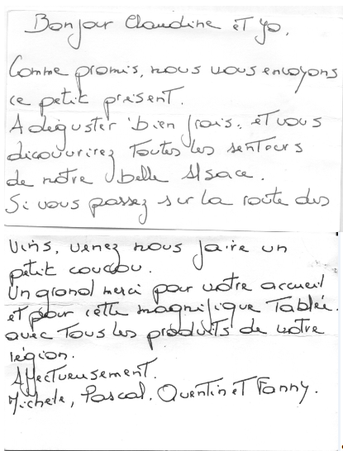 Bonjour Claudine et yo,
Comme promis, nous vous envoyons
ce petit présent.
A déguster bien frais, et vous
découvrirez toutes les senteurs
de notre belle Alsace.
Si vous passez sur la route des
vins, venez nous faire un
petit coucou.
Un grand merci pour votre accueil
et pour cette magnifique Tablée.
avec Tous les produits de votre
région.
Affectueusement.
Michele, Pascal, Quentin et Fanny.